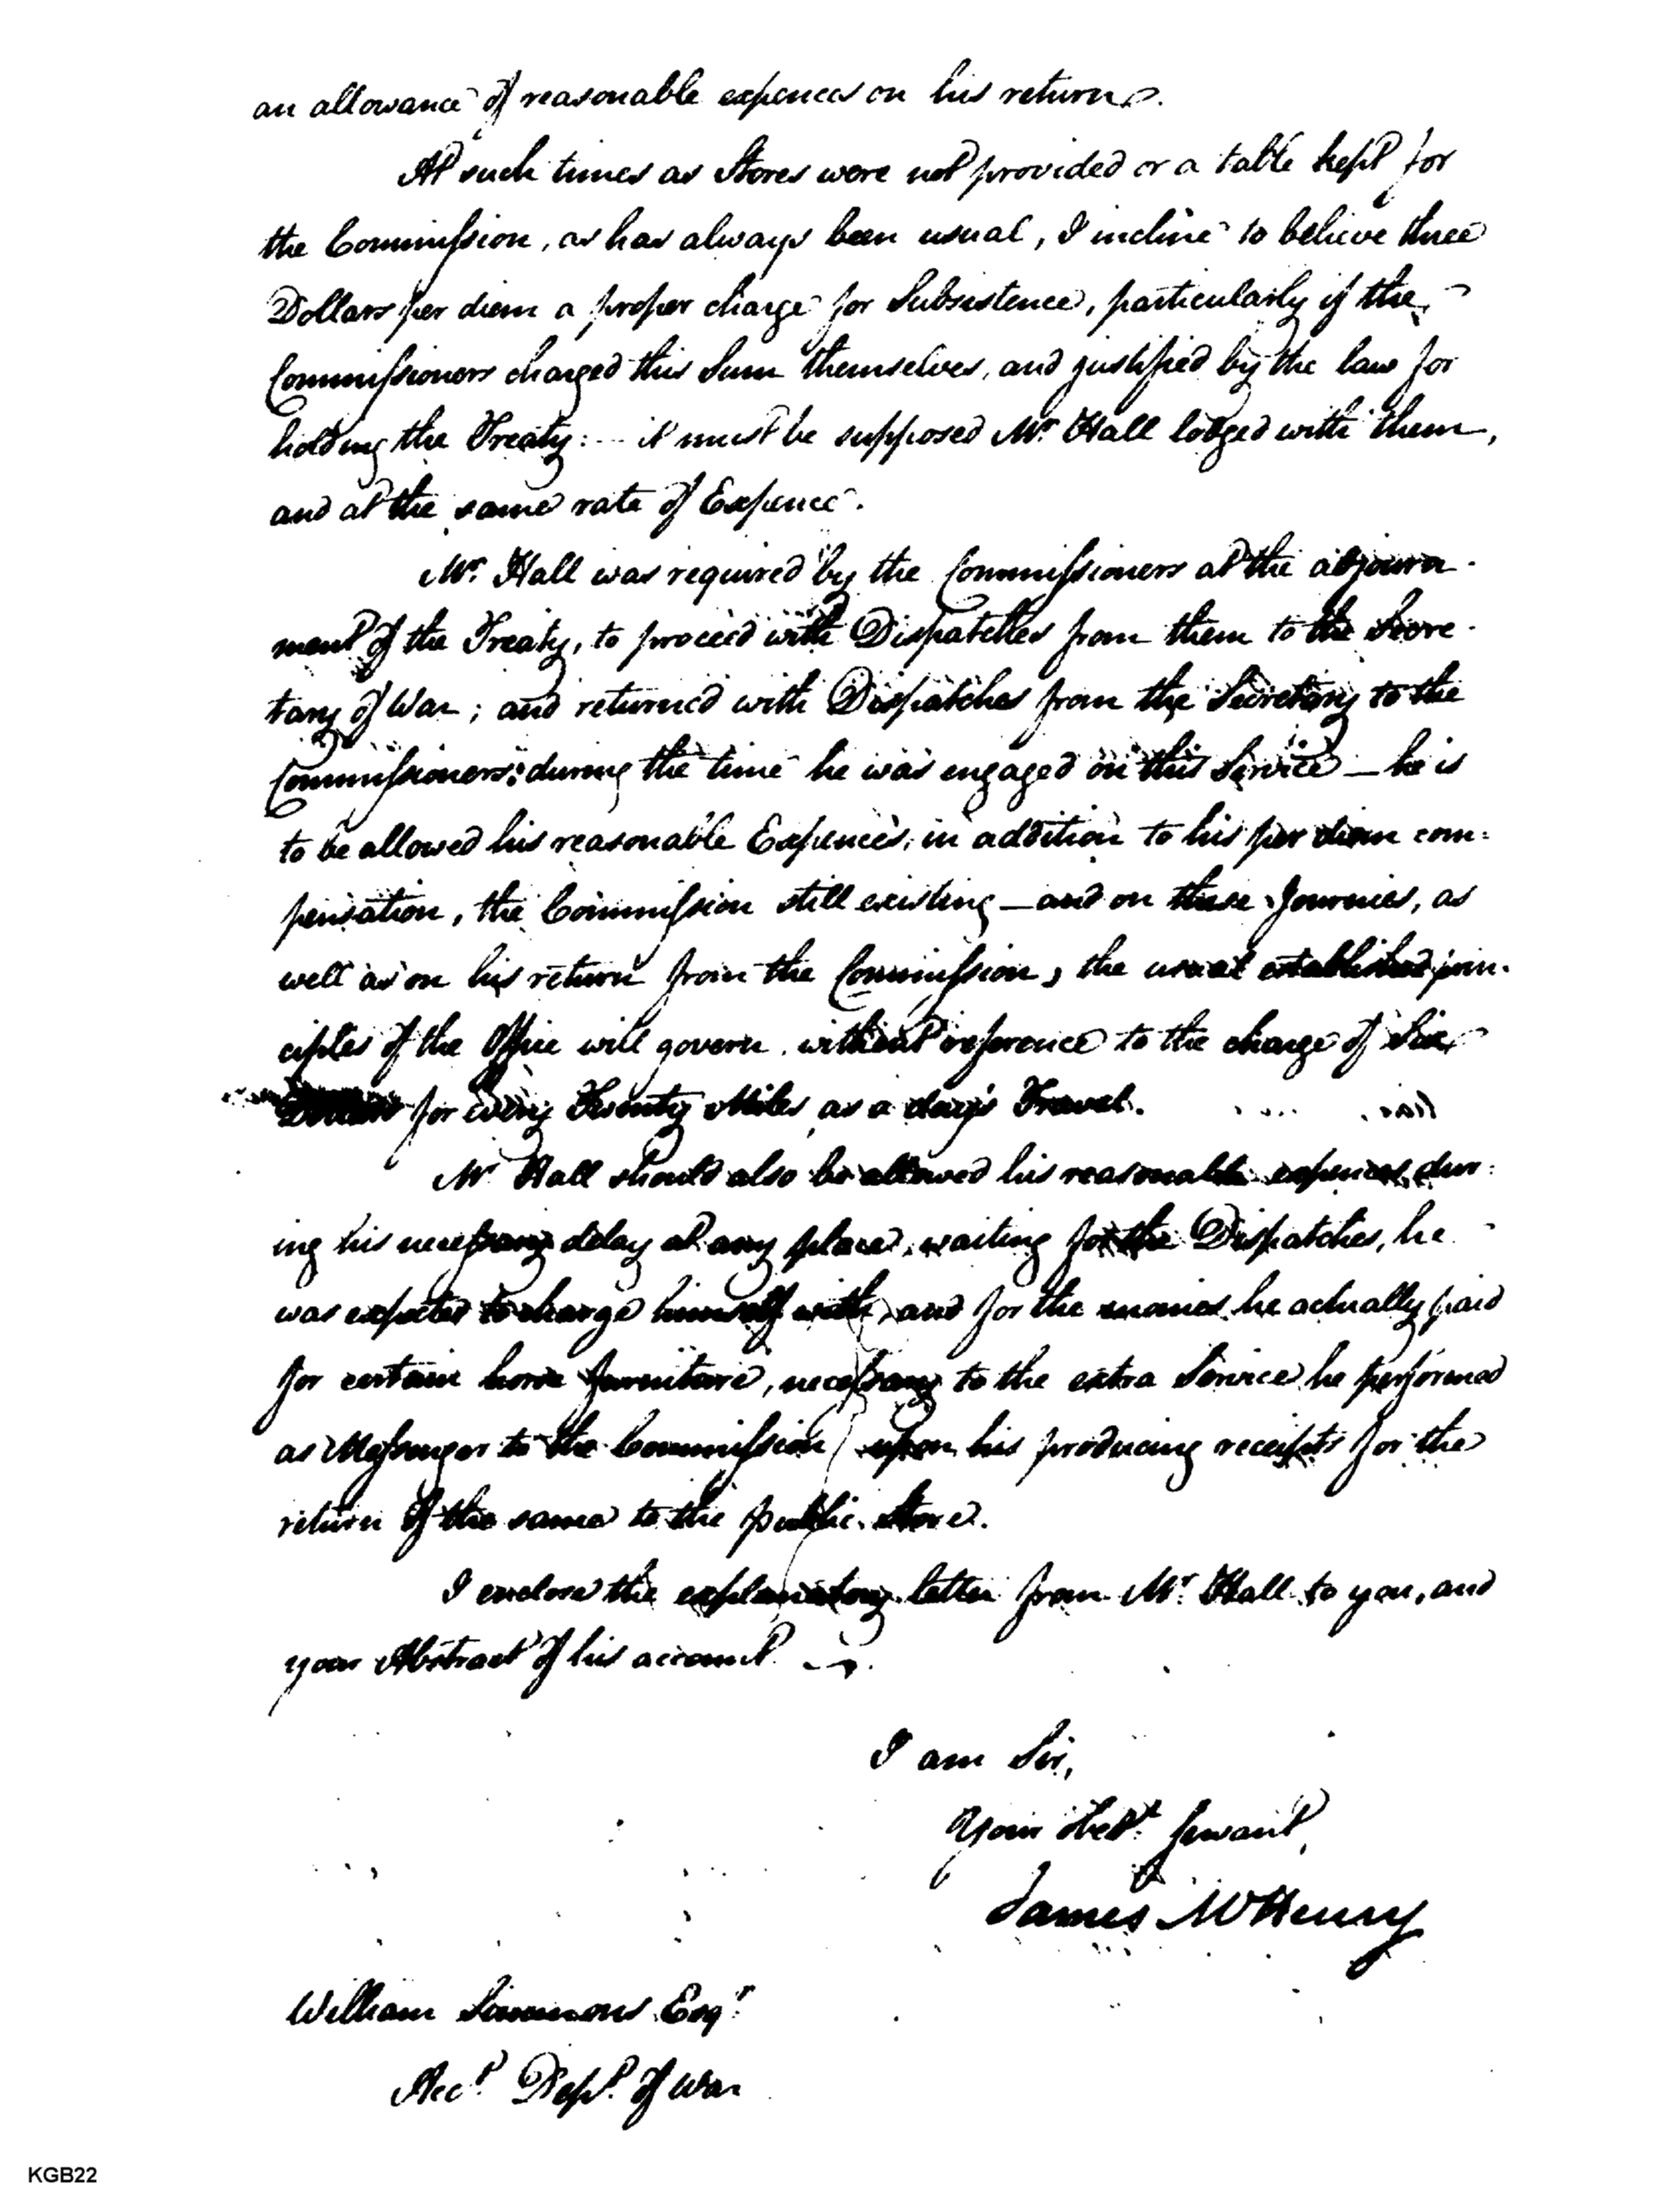 an allowance of reasonable expences on his return.
At such times as Stores were not provided or a table kept for
the Commission, as has always been usual, I incline to believe three
Dollars per diem a proper charge for Subsistence, particularly if the
Commissioners charged this Sum themselves, and justified by the law for
holding the Treaty: - it must be supposed Mr. Hall lodged with them,
and at the same rate of Expence.
Mr. Hall was required by the Commissioners at the adjourn-
ment of the Treaty, to proceed with Dispatches from them to the Secre-
tary of War; and returned with Dispatches from the Secretary to the
Commissioners: during the time he was engaged on this Service — he is
to be allowed his reasonable Expences, in addition to his per diem com-
pensation, the Commission still existing — and on these Journies, as
well as on his return from the Commission, the usual established prin-
ciples of the Office will govern, without reference to the charge of Six
Dollars for every Twenty Miles, as a day's Travel.
Mr Hall should also be allowed his reasonable expences, dur-
ing his necessary delay at any place, waiting for the Dispatches, he
was expected to charge himself with, and for the monies he actually paid
for certain horse furniture, necessary to the extra Service he performed
as Messenger to the Commission, upon his producing receipts for the
return of the same to the public Store.
I enclose the explanatory letter from Mr. Hall to you, and
your Abstract of his account.
I am Sir,
Your Obedt. Servant,
James McHenry
William Simmons Esqr.
Acct. Dept. of War
KGB22